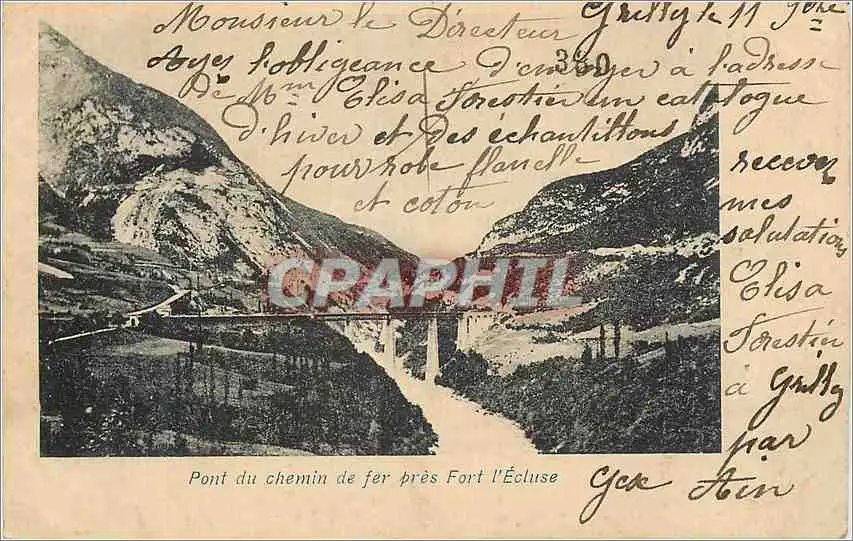 Grilly le 11 9bre
Monsieur le Directeur
380
Ayes l'obligeance d'envoyer à l'adresse
de Mme Elisa Forestier un catalogue
d'hiver et des échantillons
pour robe flanelle
et coton
recevez
mes
salutations
Elisa
Forestier
à Grilly
par
Gex Ain
CPAPHIL
Pont du chemin de fer près Fort l'Écluse